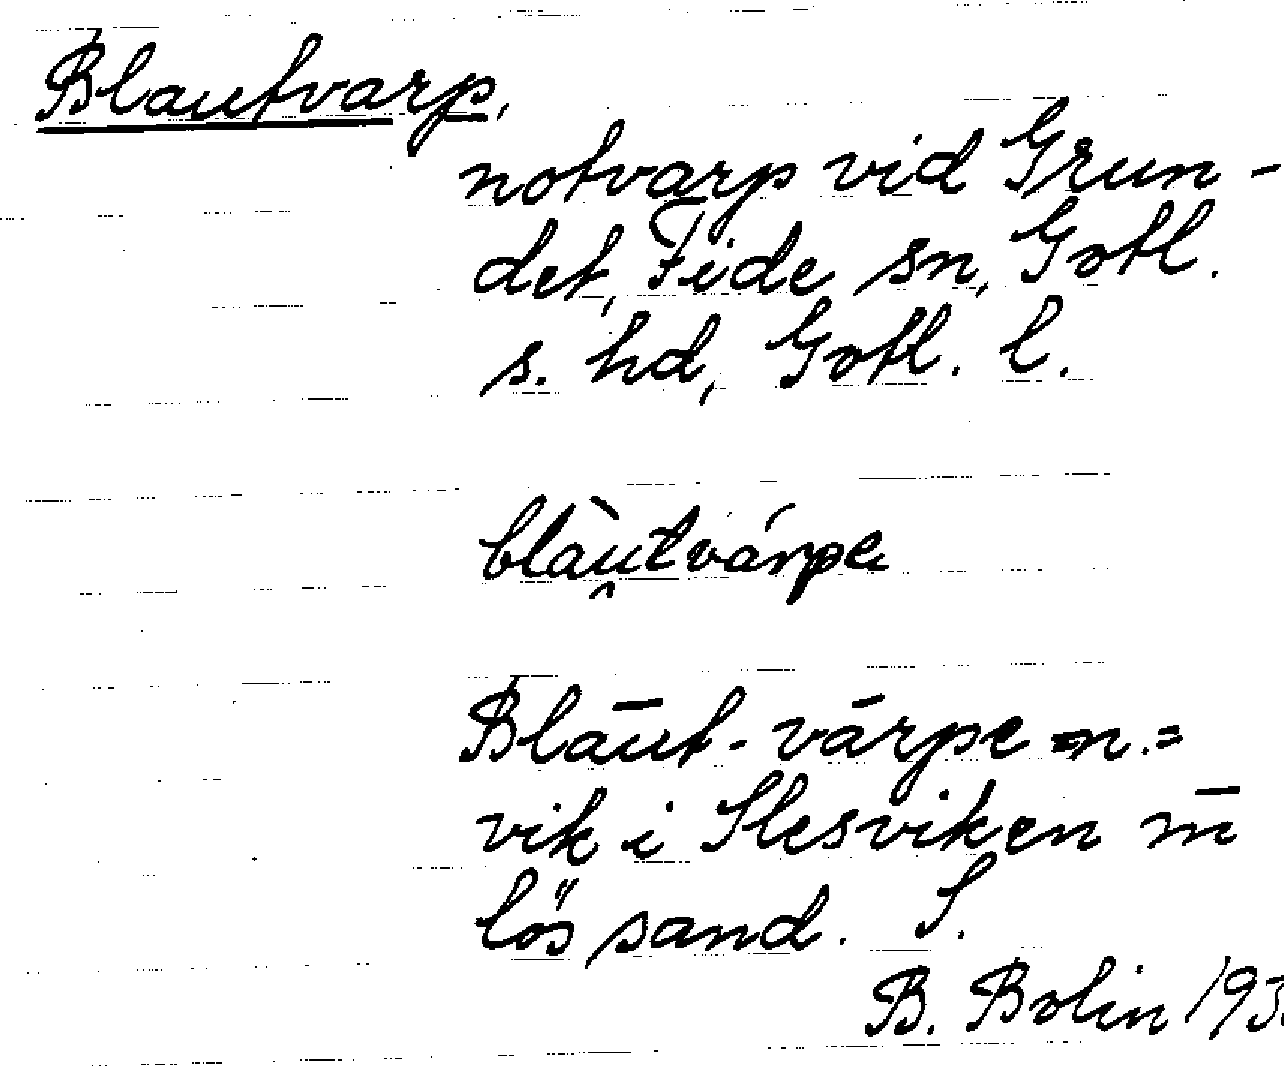 Blautvarp,
notvarp vid Grun-
det, Fide sn, Gotl.
s. hd, Gotl. l.
blàu̯tvárpe
Blāut-vārpe n.=
vik i Slesviken m̄
lös sand. S.
B. Bolin 193